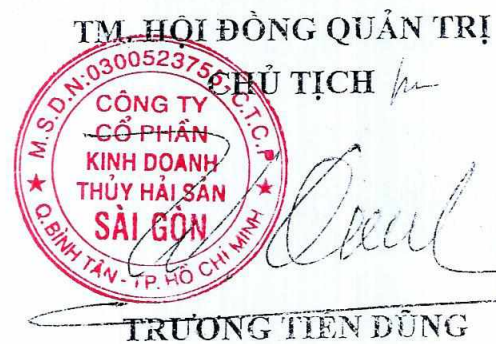 TM. HỘI ĐỒNG QUẢN TRỊ
CHỦ TỊCH
M.S.D.N:0300523756-C.T.C.P
CÔNG TY
CỔ PHẦN
KINH DOANH
THỦY HẢI SẢN
SÀI GÒN
Q.BÌNH TÂN - TP. HỒ CHÍ MINH
TRƯƠNG TIẾN DŨNG